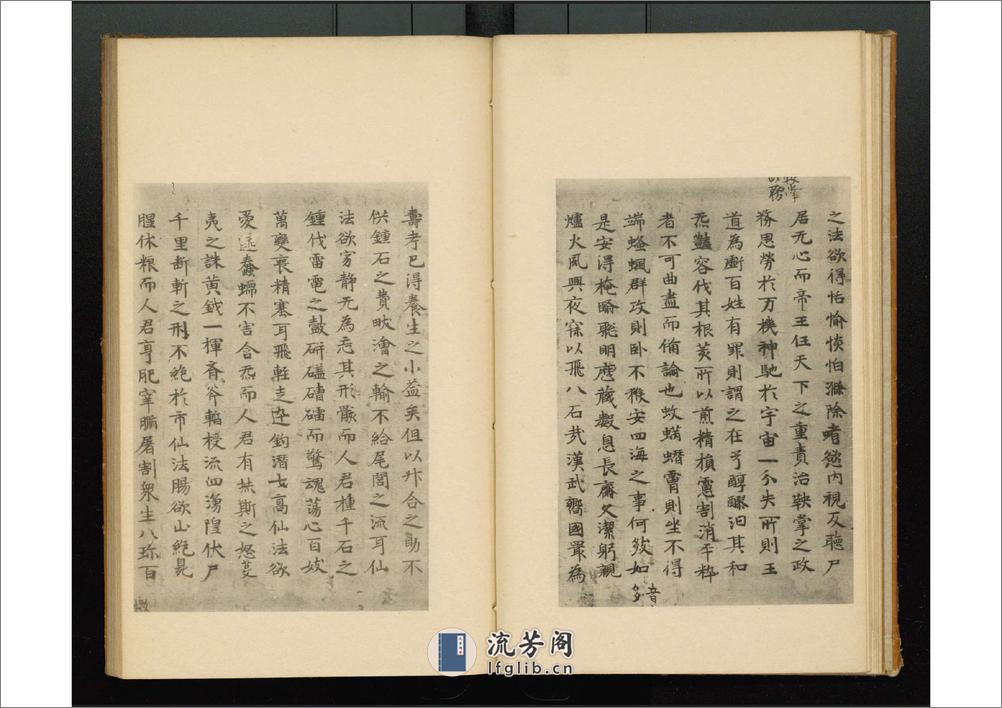 之法欲得恬愉惔怕滌除嗜慾內視反聽尸
居无心而帝王任天下之重責治鞅掌之政
務思勞於万機神馳於宇宙一介失所則王
道為虧百姓有罪則謂之在予醇醪汩其和
炁豔容伐其根荄所以煎精損慮割消乎粹
者不可曲盡而俻論也蚊蟎噆膚則坐不得
端蛒蝨群攻則卧不獲安四海之事何like如
是安得掩翳聡明歷蔵數息長齋久潔躬親
爐火夙興夜寐以飛八石㢤漢武嚮國最為
壽考已得養生之小益矣但以升合之助不
供鍾石之費畎澮之輸不給尾閭之流耳仙
法欲字静无為忘其形骸而人君橦千石之
鍾伐雷電之鼓砰磕磌礌而驚魂蕩心百妓
萬變喪精塞耳飛軽走迅鈎潛弋高仙法欲
愛逮蠢蠕不害含炁而人君有赫斯之怒芟
夷之誅黄鉞一揮齊斧輻授流血滂隍伏尸
千里断斬之刑不絶於市仙法腸欲山絶晁
腥休粮而人君亨肥宰腯屠割衆生八珎百
流芳阁
lfglib.cn